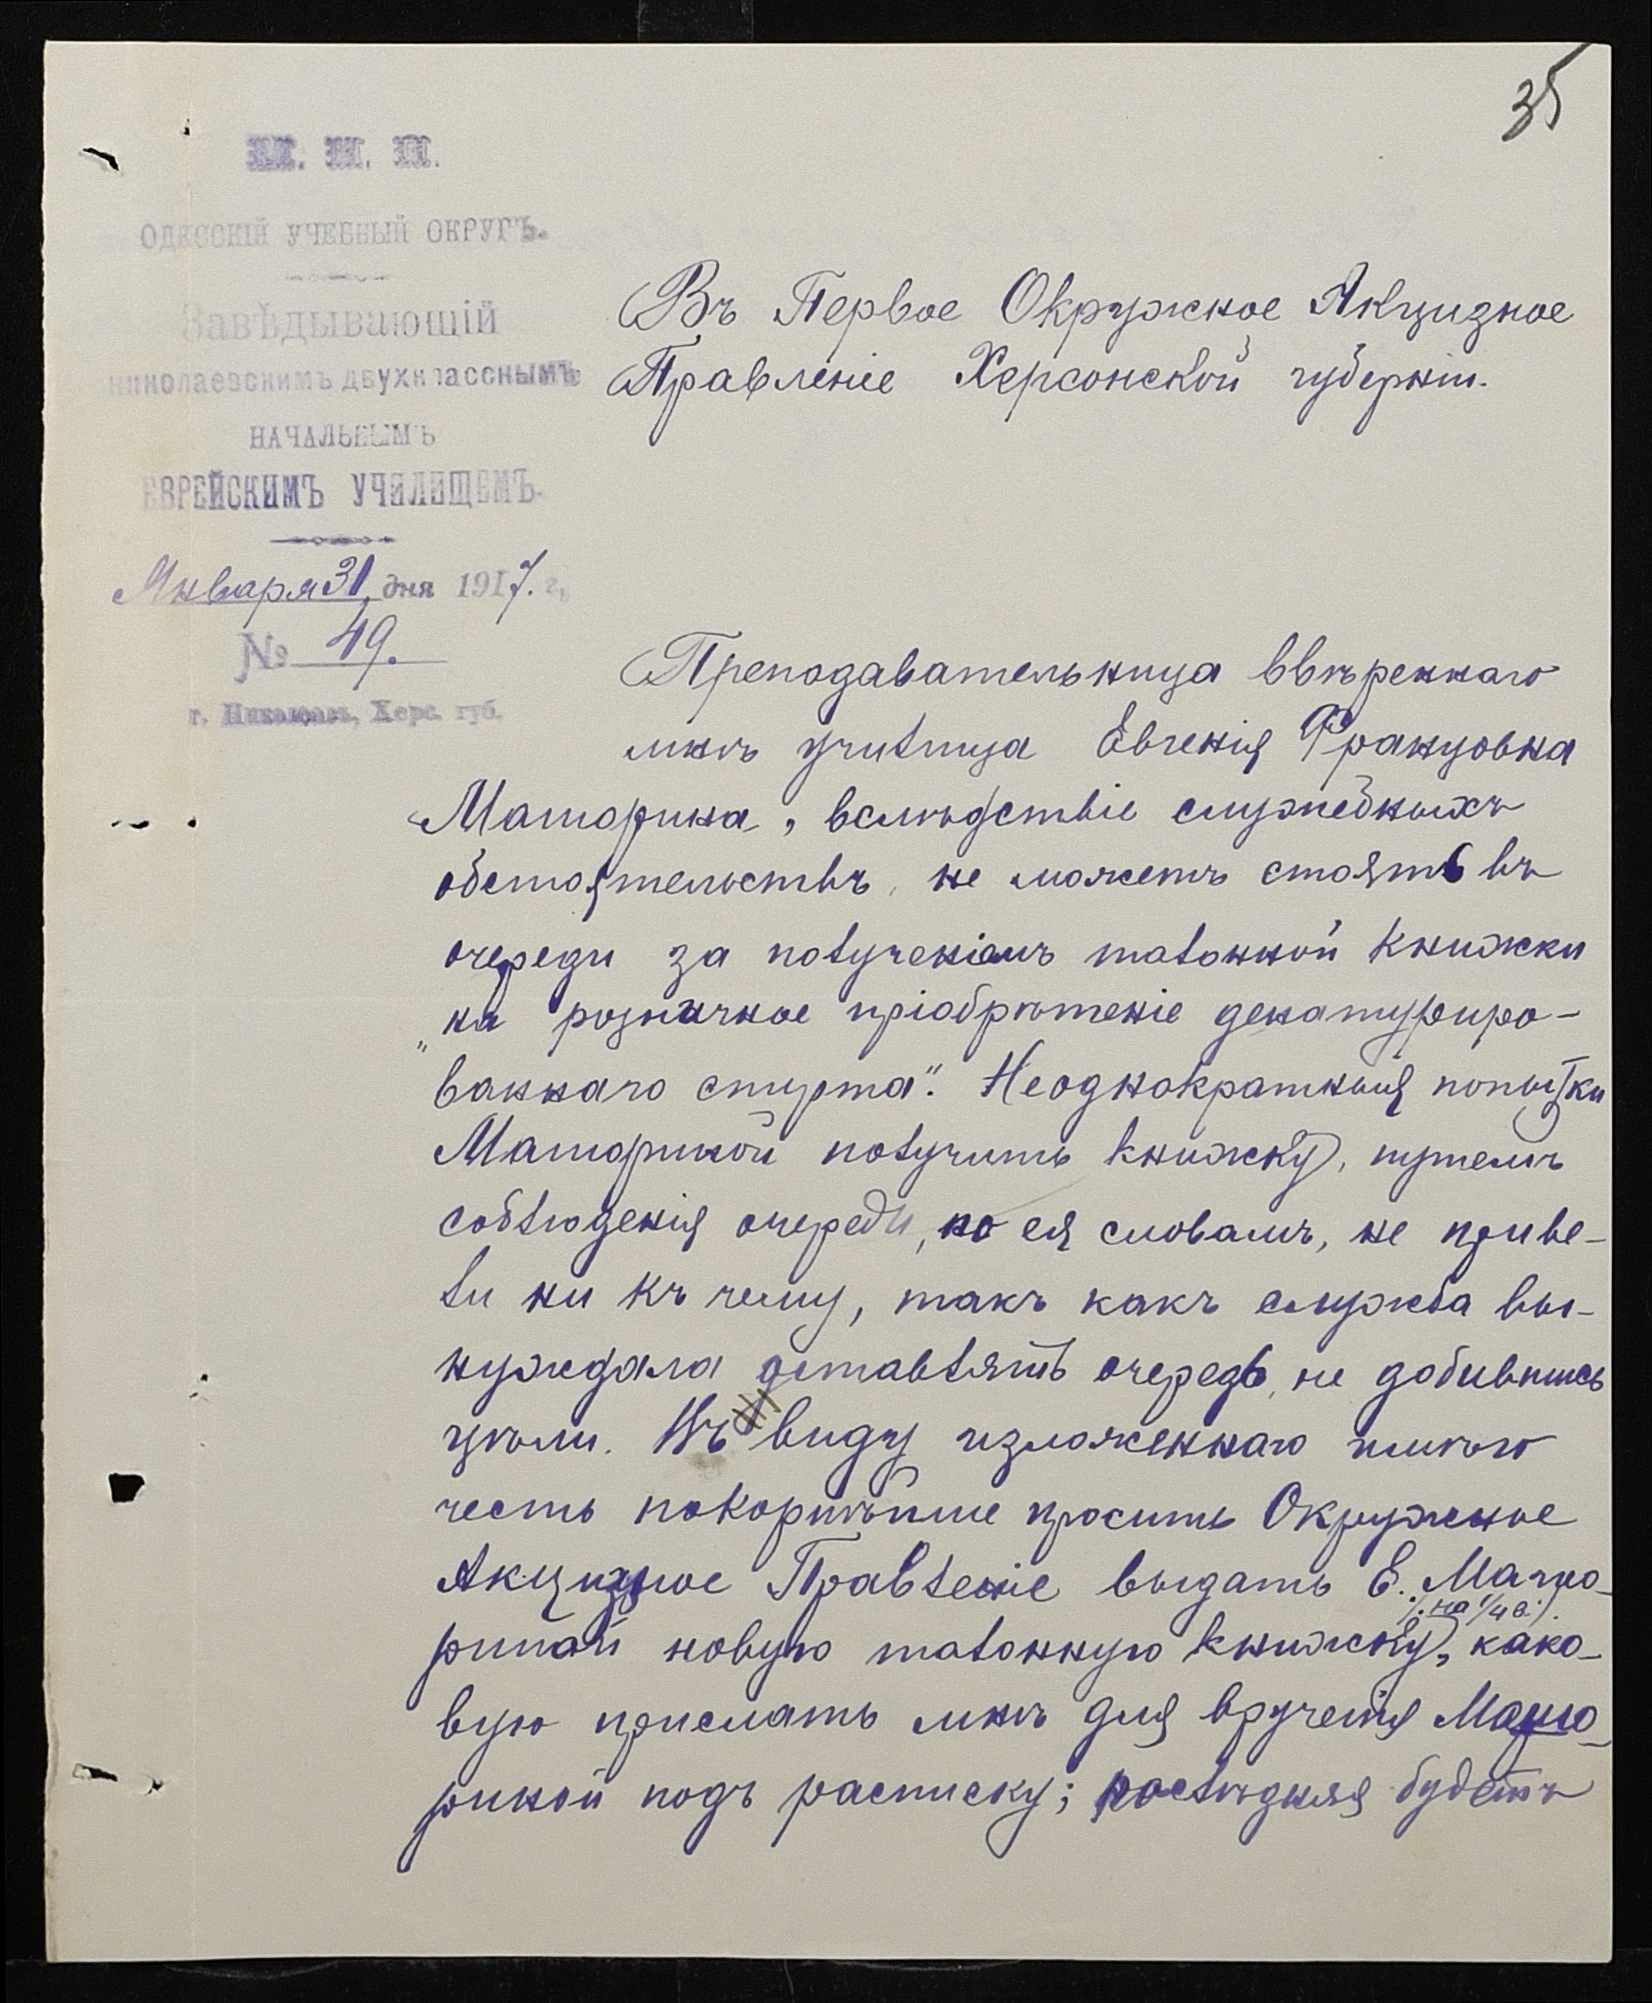 35
М. Н. П.
ОДЕССКІЙ УЧЕБНЫЙ ОКРУГЪ.
Завѣдывающій
николаевскимъ двухкласснымъ
НАЧАЛЬНЫМЪ
ЕВРЕЙСКИМЪ УЧИЛИЩЕМЪ.
Января 31 дня 1917. г.
№ 49.
г. Николаевъ, Херс. губ.
Въ Первое Окружное Акцизное
Правленіе Херсонской губерніи.
Преподавательница ввѣреннаго
мнѣ училища Евгенія Францовна
Маторина, вслѣдствіе служебныхъ
обстоятельствъ, не можетъ стоять въ
очереди за полученіемъ талонной книжки
"на розничное пріобрѣтеніе денатуриро-
ваннаго спирта". Неоднократныя попытки
Маториной получить книжку, путемъ
соблюденія очереди, по ея словамъ, не приве-
ли ни къ чему, такъ какъ служба вы-
нуждала оставлять очередь, не добившись
цѣли. Въ виду изложеннаго имѣю
честь покорнѣйше просить Окружное
Акцизное Правленіе выдать Е. Мато-
риной новую талонную книжку /:на 1/4 в:/, како-
вую прислать мнѣ для врученія Мато-
риной подъ расписку; послѣдняя будетъ